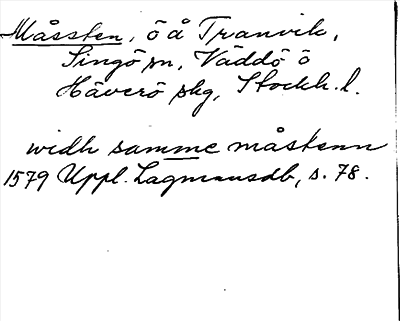 Måssten, ö å Tranvik,
Singö sn, Väddö o
Häverö skg, Stockh. l.
widh samme måstenn
1579 Uppl. Lagmansdb, s. 78.